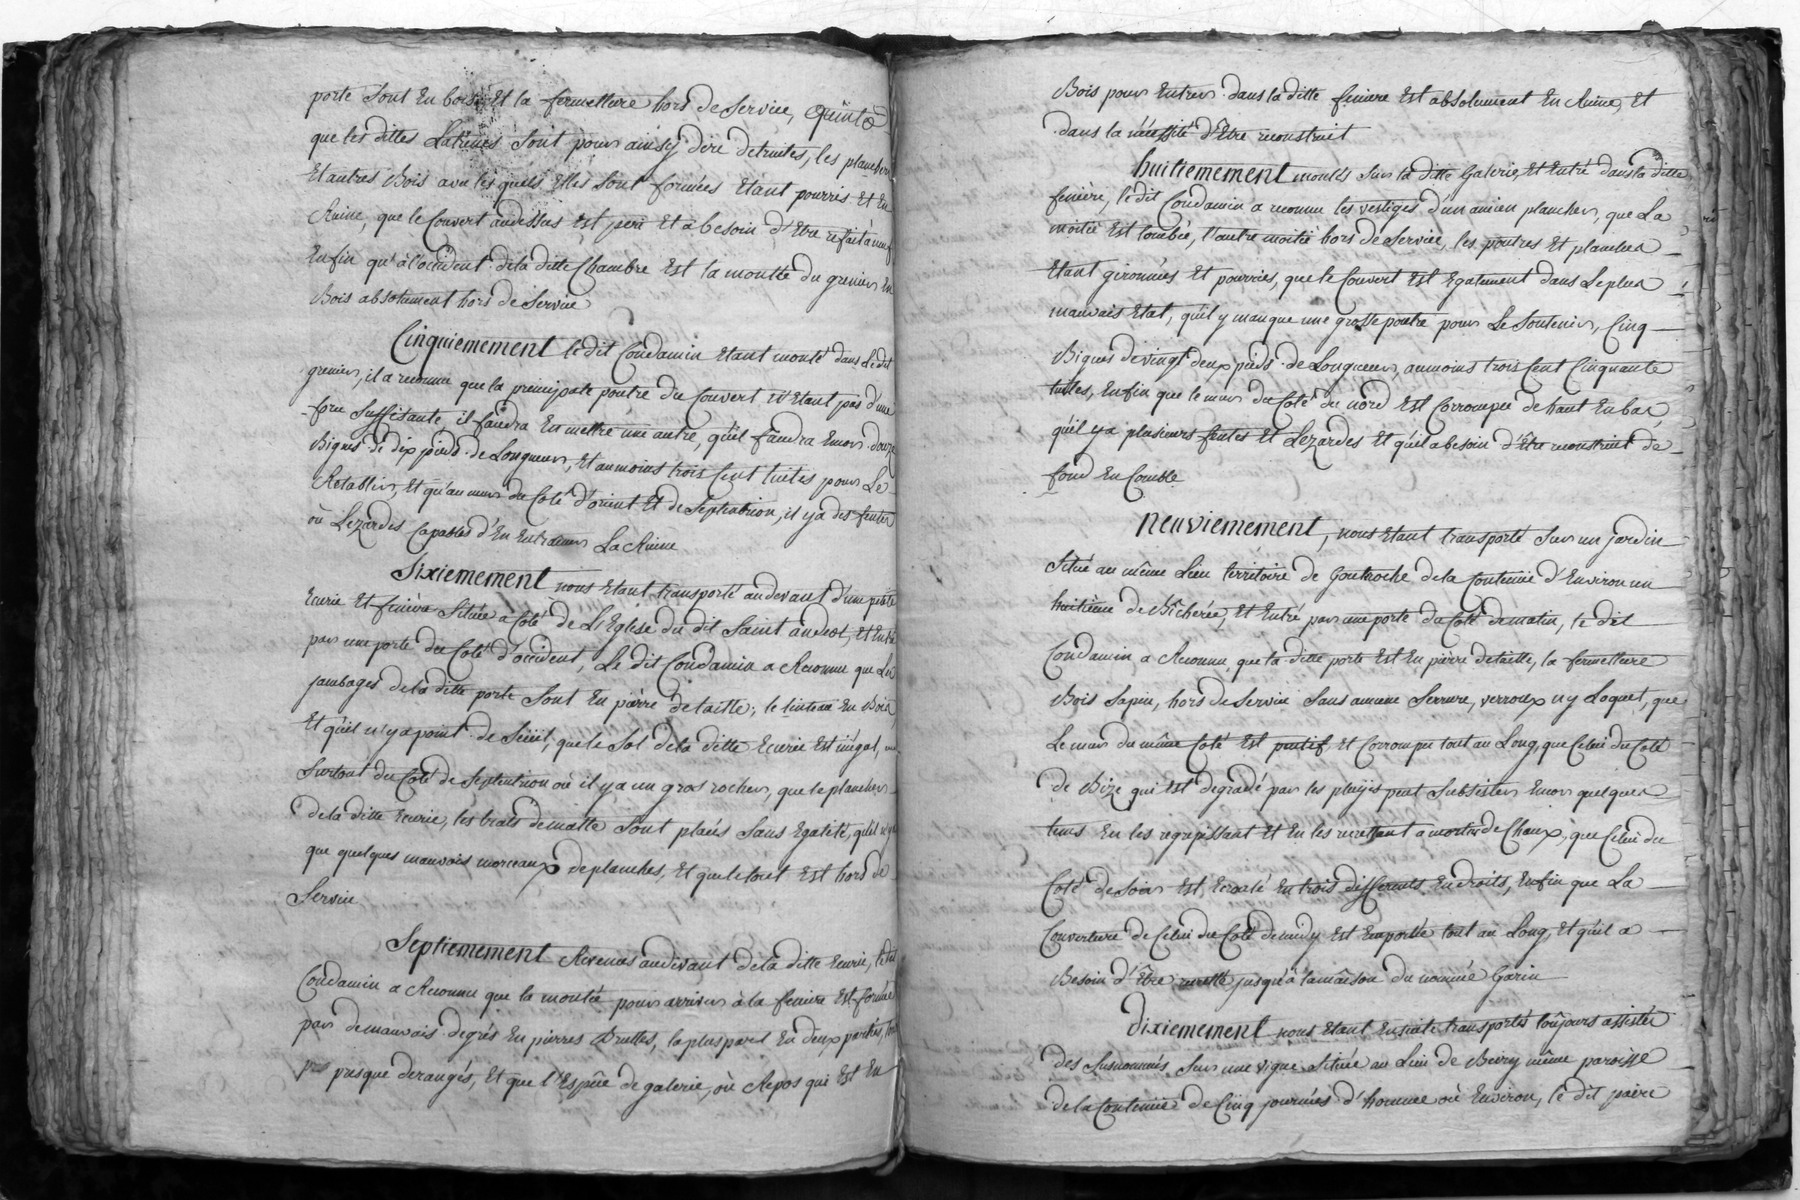 porte sont En bois Et la fermetture hors de Service, Quinto
que les dittes Latrines sont pour ainsy dire detruites, les planchers
Et autres Bois avec lesquels Elles sont formées Etant pourris Et En
Ruine, que le Couvert audessus Est peri Et à besoin d'Etre refait à neuf
Enfin qu'à l'occident de la ditte Chambre Est la montée du grenier En
Bois absolument hors de Service
Cinquiemement le dit Condamin Etant monté dans Le dit
grenier, il a reconnu que la principale poutre du Couvert n'Etant pas d'une
force suffisante, il faudra En mettre une autre, qu'il faudra Encor douze
Bigues de dix pieds de Longueur, Et au moins trois Cent tuiles pour Le
Retablir, Et qu'au murs du Coté d'orient Et de Septentrion, il y a des fentes
ou Lezardes Capables d'En Entrainer La Ruine
Sixiemement nous Etant transporté audevant d'une petite
Ecurie Et feniere Située à Coté de L'Eglise du dit Saint andeol, Et Entré
par une porte du Coté d'occident, Le dit Condamin a Reconnu que Les
jambages de la ditte porte sont En pierre de taille, le linteau En Bois
Et qu'il n'y a point de Seuil, que le Sol de la ditte Ecurie Est inégal,
Surtout du Coté de Septentrion où il y a un gros rocher, que le plancher
de la ditte Ecurie, les traits de malte sont placés Sans Egalité, qu'il n'y a
que quelques mauvais morceaux de planches, Et que le toret Est hors de
Service
Septiemement Revenus audevant de la ditte Ecurie, le dit
Condamin a Reconnu que la montée pour arriver à la feniere Est formée
par de mauvais degrés En pierres Bruttes, la pluspart En deux parties, tous
presque derangés, Et que l'Espece de galerie, où Repos qui Est En
Bois pour Entrer dans la ditte feniere Est absolument En Ruine, Et
dans la nécessité d'Etre reconstruit
huitiemement montés Sur la ditte Galerie, Et Entré dans la ditte
feniere, le dit Condamin a reconnu les vestiges d'un ancien plancher, que La
moitié Est tombée, l'autre moitié hors de Service, les poutres Et plancher
Etant gironnées Et pourries, que le Couvert Est Egalement dans Le plus
mauvais Etat, qu'il y manque une grosse poutre pour Le soutenir, Cinq
Bigues de vingt deux pieds de Longueur, au moins trois Cent Cinquante
tuilles, Enfin que le mur du Coté du nord Est Corrompu de haut En bas,
qu'il y a plusieurs fentes Et Lezardes Et qu'il a besoin d'être reconstruit de
fond En Comble
Neuviemement, nous Etant transporté Sur un jardin
Situé au même Lieu territoire de Goutroche de la Contenue d'Environ un
huitième de Bicherée, Et Entré par une porte du Coté de matin, le dit
Condamin a Reconnu que la ditte porte Est En pierre de taille, la fermetture
Bois Sapin, hors de Service Sans aucune Serrure, verroux n'y Loquet, que
Le mur du même Coté Est Et Corrompu tout au Long, que Celui du Coté
de Bize qui Est degradé par les pluyes peut Subsister Encor quelques
tems En les regrepissant Et En les remettant a mortier de Chaux, que Celui du
Coté de Soir Est Ecroulé En trois differents Endroits, Enfin que La
Couverture de Celui du Coté de midy Est Emportée tout au Long, Et qu'il a
Besoin d'Etre jusqu'à la maison du nommé Garin
dixiemement nous Etant Ensuite transportés toujours assistés
des susnommés, Sur une vigne Située au Lieu de même paroisse
de la Contenue de Cinq journées d'homme où Environ, le dit